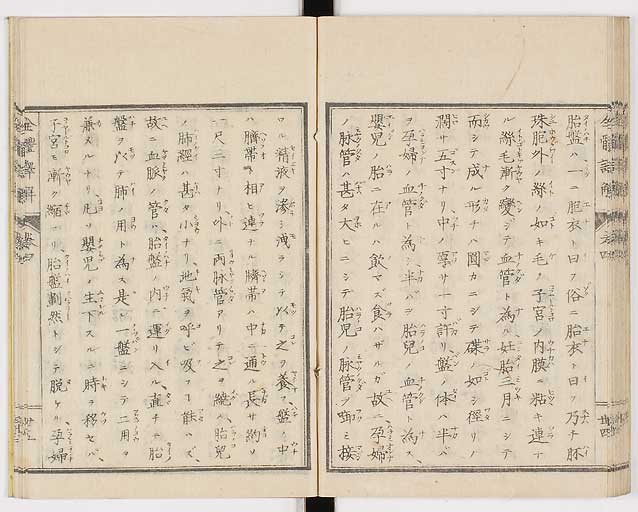 胎盤ハ一ニ胞衣ト曰フ俗ニ胎衣ト曰フ乃チ胚
珠胞外ノ鬆如キ毛ノ子宮ノ内膜ニ粘キ連ナ
ル鬆毛漸ク變シテ血管ト為ル妊胎三月ニシテ
而シテ成ル形チハ圓カニシテ碟ノ如シ徑リノ
濶サ五寸ナリ中ノ厚サ一寸許リ盤ノ体ハ半バ
ヲ孕婦ノ血管ト為シ半バヲ胎兒ノ血管ト為ス
嬰児ノ胎ニ在ルハ飲マズ食ハザルガ故ニ孕婦
ノ脉管ハ甚タ大ヒニシテ胎児ノ脉管ヲ啣ミ接
ワル精液ヲ滲ミ洩ラシテ以テ之ヲ養フ盤ノ中
ハ臍帯ト相ヒ連ナル臍帯ハ中ニ通ル長サ約ソ
一尺二寸ナリ外ニ両脉管アリテ之ヲ繞ル胎兒
ノ肺經ハ甚タ小ナリ地氣ヲ呼ビ吸フヿ能ハズ
故ニ血脉ノ管ハ胎盤ノ内ニ運リ入ル直チニ胎
盤ヲ以テ肺ノ用ト為ス是ト一盤ニシテ二用ヲ
兼スルナリ凡ソ嬰児ノ生下スルニ時ヲ移セバ
子宮モ漸ク縮マリ胎盤劃然トシテ脱ケル孕婦
全體